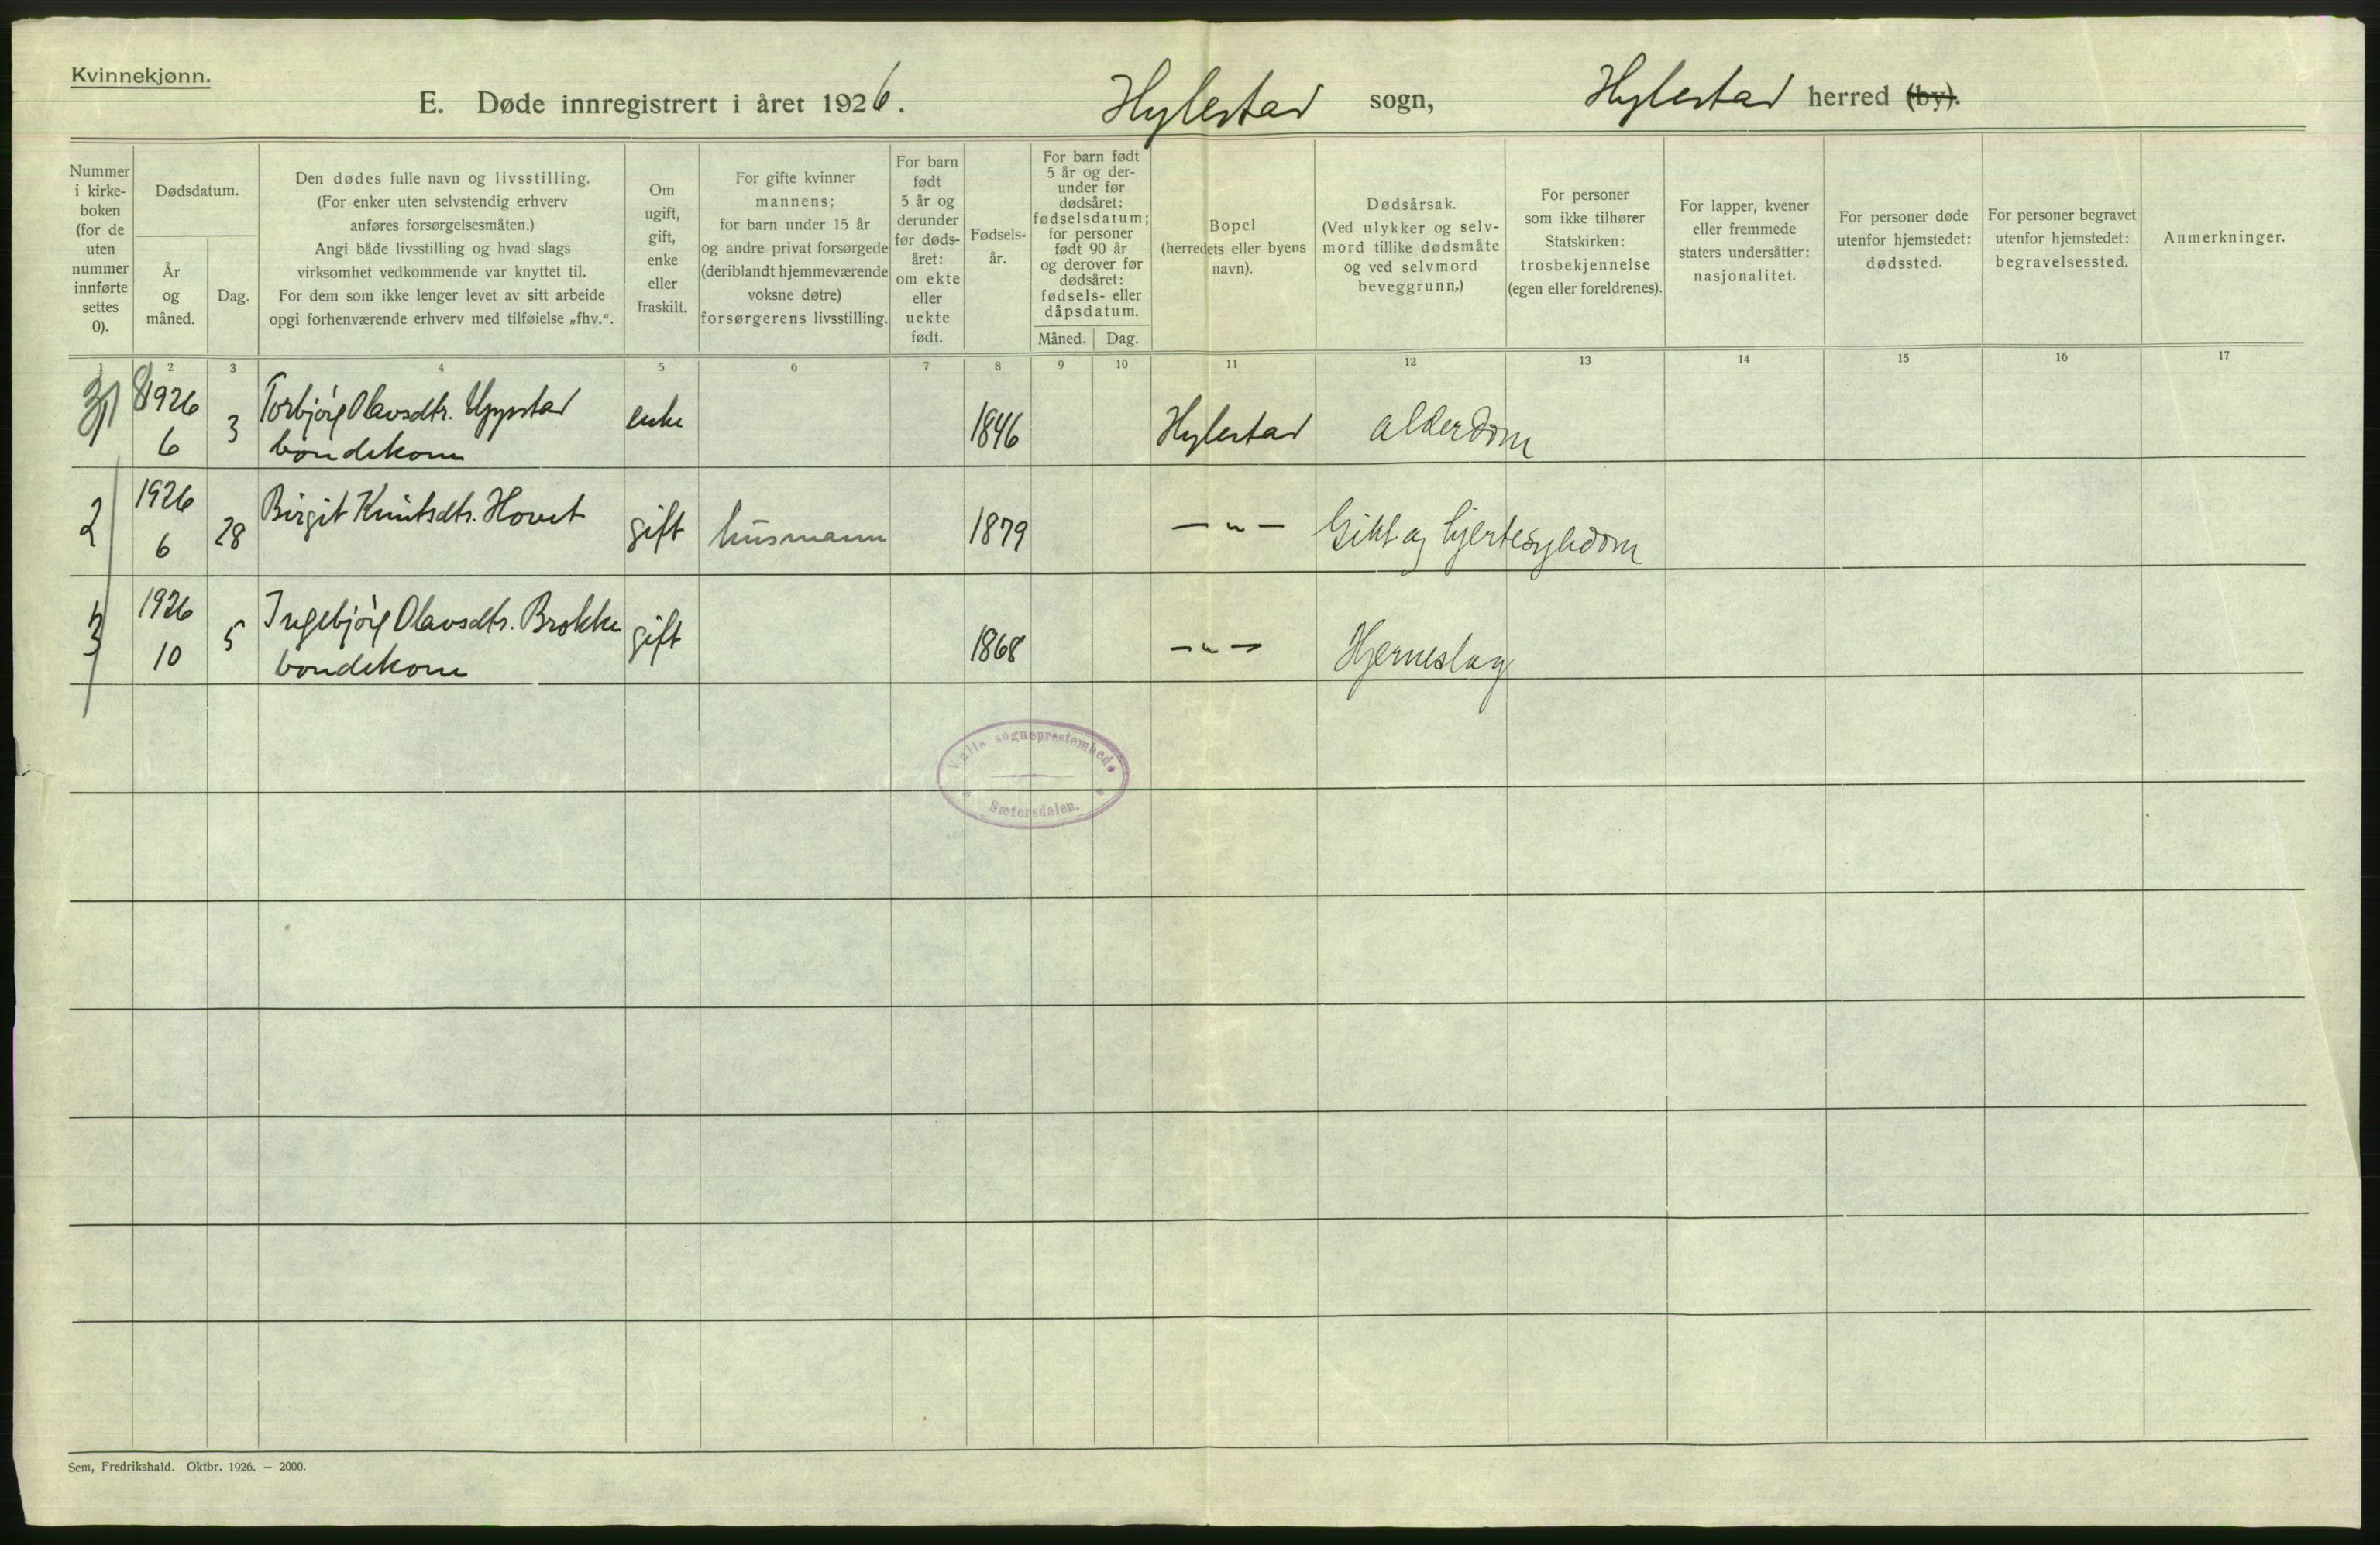 Kvinnekjønn.
E. Døde innregistrert i året 1926. Hylestad sogn, Hylestad herred (by).
Nummer
i kirke-
boken
(for de
uten
nummer
innførte
settes
0).
Dødsdatum.
År
og
måned.
Dag.
Den dødes fulle navn og livsstilling.
(For enker uten selvstendig erhverv
anføres forsørgelsesmåten.)
Angi både livsstilling og hvad slags
virksomhet vedkommende var knyttet til.
For dem som ikke lenger levet av sitt arbeide
opgi forhenværende erhverv med tilføielse „fhv.“.
Om
ugift,
gift,
enke
eller
fraskilt.
For gifte kvinner
mannens;
for barn under 15 år
og andre privat forsørgede
(deriblandt hjemmeværende
voksne døtre)
forsørgerens livsstilling.
For barn
født
5 år og
derunder
før døds-
året:
om ekte
eller
uekte
født.
Fødsels-
år.
For barn født
5 år og der-
under før
dødsåret:
fødselsdatum;
for personer
født 90 år
og derover før
dødsåret:
fødsels- eller
dåpsdatum.
Måned. Dag.
Bopel
(herredets eller byens
navn).
Dødsårsak.
(Ved ulykker og selv-
mord tillike dødsmåte
og ved selvmord
beveggrunn.)
For personer
som ikke tilhører
Statskirken:
trosbekjennelse
(egen eller foreldrenes).
For lapper, kvener
eller fremmede
staters undersåtter:
nasjonalitet.
For personer døde
utenfor hjemstedet:
dødssted.
For personer begravet
utenfor hjemstedet:
begravelsessted.
Anmerkninger.
1 2 3 4 5 6 7 8 9 10 11 12 13 14 15 16 17
1926 Torbjörg Olavsdtr. Uppstad
6 3 bondekone enke 1846 Hylestad alderdom
1926 Birgit Knutsdtr. Hovet
2 6 28 gift husmann 1879 — „ — Gikt og hjertesykdom
1926 Ingebjörg Olavsdtr. Brokke
3 10 5 bondekone gift 1868 — „ — Hjerneslag
Valle sogneprestembede
Sætersdalen.
Sem, Fredrikshald. Oktbr. 1926. — 2000.